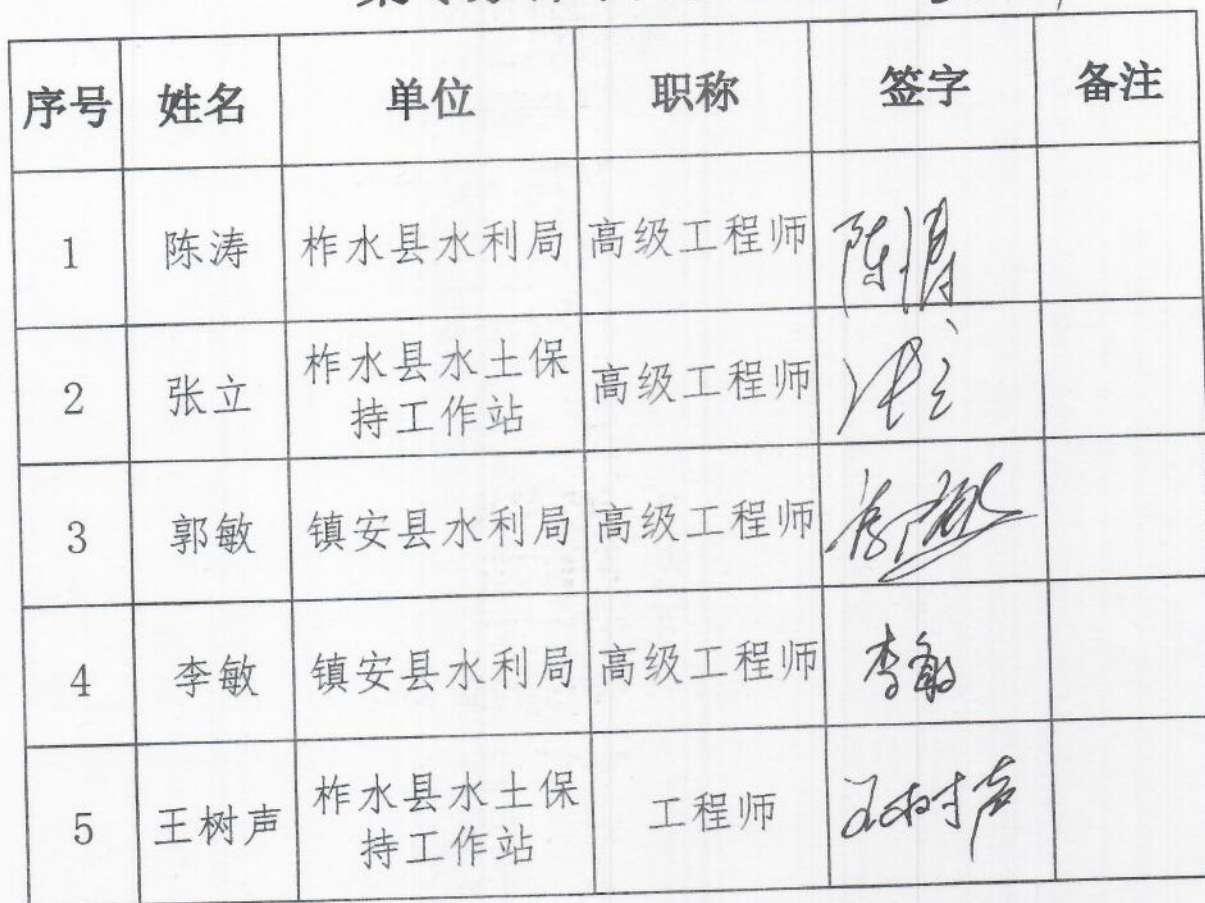 序号 姓名 单位 职称 签字 备注
1 陈涛 柞水县水利局 高级工程师 陈涛
2 张立 柞水县水土保 高级工程师 张立
持工作站
3 郭敏 镇安县水利局 高级工程师
4 李敏 镇安县水利局 高级工程师 李敏
5 王树声 柞水县水土保 工程师 王树声
持工作站